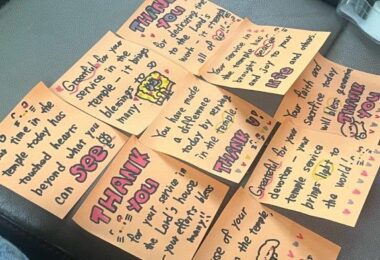 THANK
YOU
for dedicating
to the Lord's
work - it means
all of
Grateful for your
service in the
temple - it brings
blessings
many
Your service in
the temple brings
PEACE
and joy to your
life and others.
Your faith and
sacrifice today
will bless
THANK
YOU
time in the
temple today has
touched hearts
beyond what you
can SEE
You have made
a difference
today by being
in the temple
THANK
YOU
Grateful for your
devotion - your
temple service
brings light to
the world!
THANK
YOU
for your service in
the Lord's house
- your efforts bless
many!!
of your
the temple